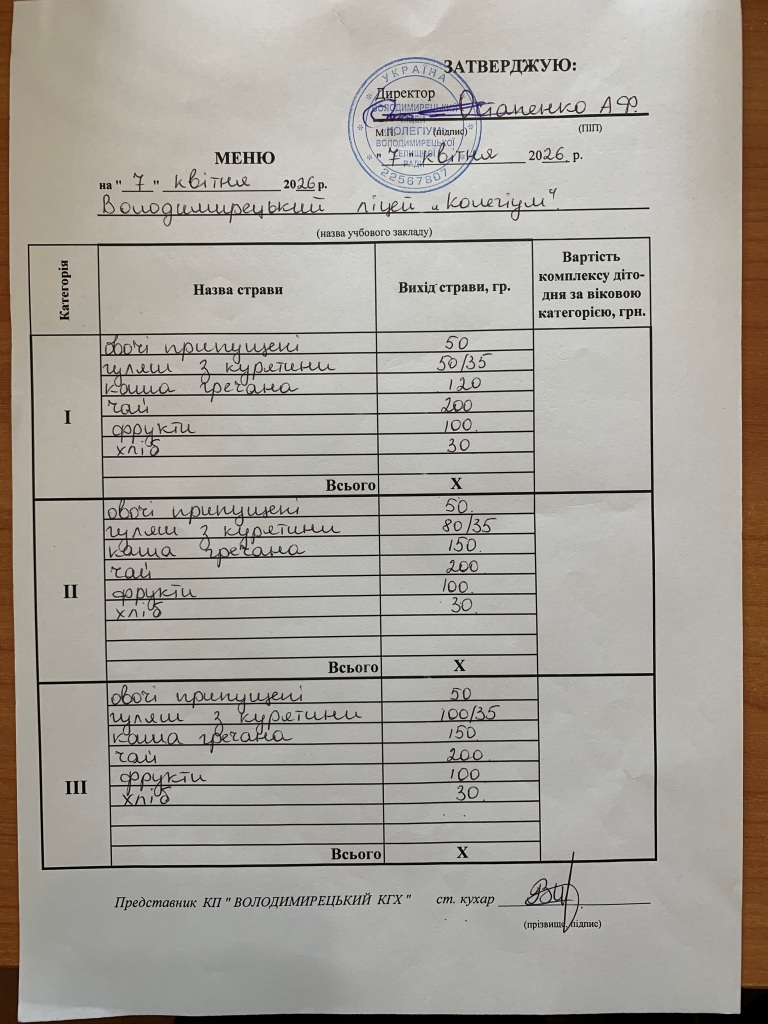 ЗАТВЕРДЖУЮ:
Директор
Остапенко А.Ф.
М.П. (підпис) (ПІП)
"7" квітня 2026 р.
УКРАЇНА
ВОЛОДИМИРЕЦЬКИЙ
ЛІЦЕЙ
КОЛЕГІУМ
ВОЛОДИМИРЕЦЬКОЇ
СЕЛИЩНОЇ
РАДИ
22567807
МЕНЮ
на "7" квітня 2026 р.
Володимирецький ліцей „Колегіум"
(назва учбового закладу)
Категорія
Назва страви
Вихід страви, гр.
Вартість
комплексу діто-
дня за віковою
категорією, грн.
I
овочі припущені 50
гуляш з курятини 50/35
каша гречана 120
чай 200
фрукти 100
хліб 30
Всього Х
II
овочі припущені 50
гуляш з курятини 80/35
каша гречана 150
чай 200
фрукти 100
хліб 30
Всього Х
III
овочі припущені 50
гуляш з курятини 100/35
каша гречана 150
чай 200
фрукти 100
хліб 30
Всього Х
Представник КП " ВОЛОДИМИРЕЦЬКИЙ КГХ " ст. кухар
(прізвище, підпис)